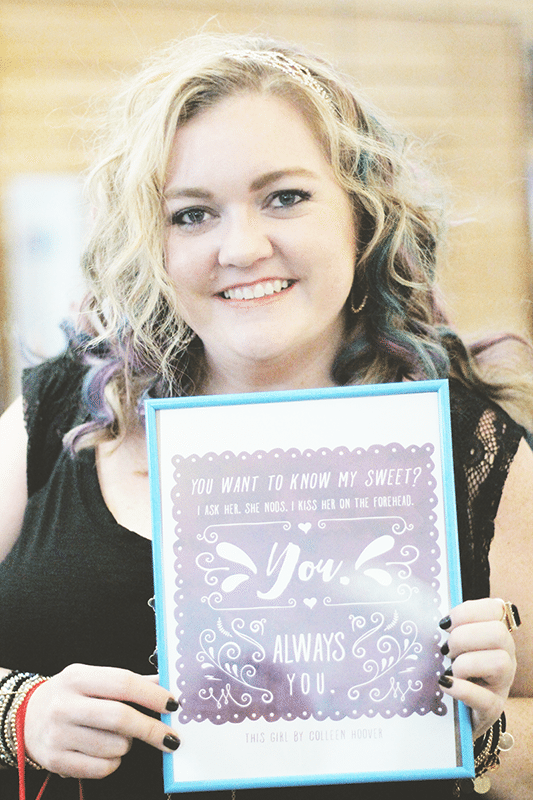 YOU WANT TO KNOW MY SWEET?
I ASK HER. SHE NODS. I KISS HER ON THE FOREHEAD.
You.
ALWAYS
YOU.
THIS GIRL BY COLLEEN HOOVER